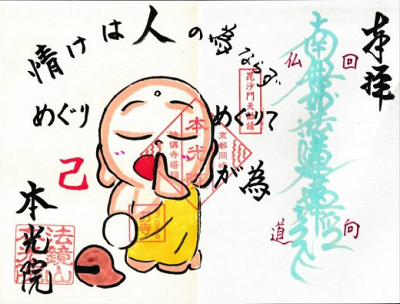 奉拝
南無妙法蓮華経
仏
回
向
道
情けは人の為ならず
めぐりめぐりて
己が為
本光院
毘沙門天勧請
本光院
法鏡山